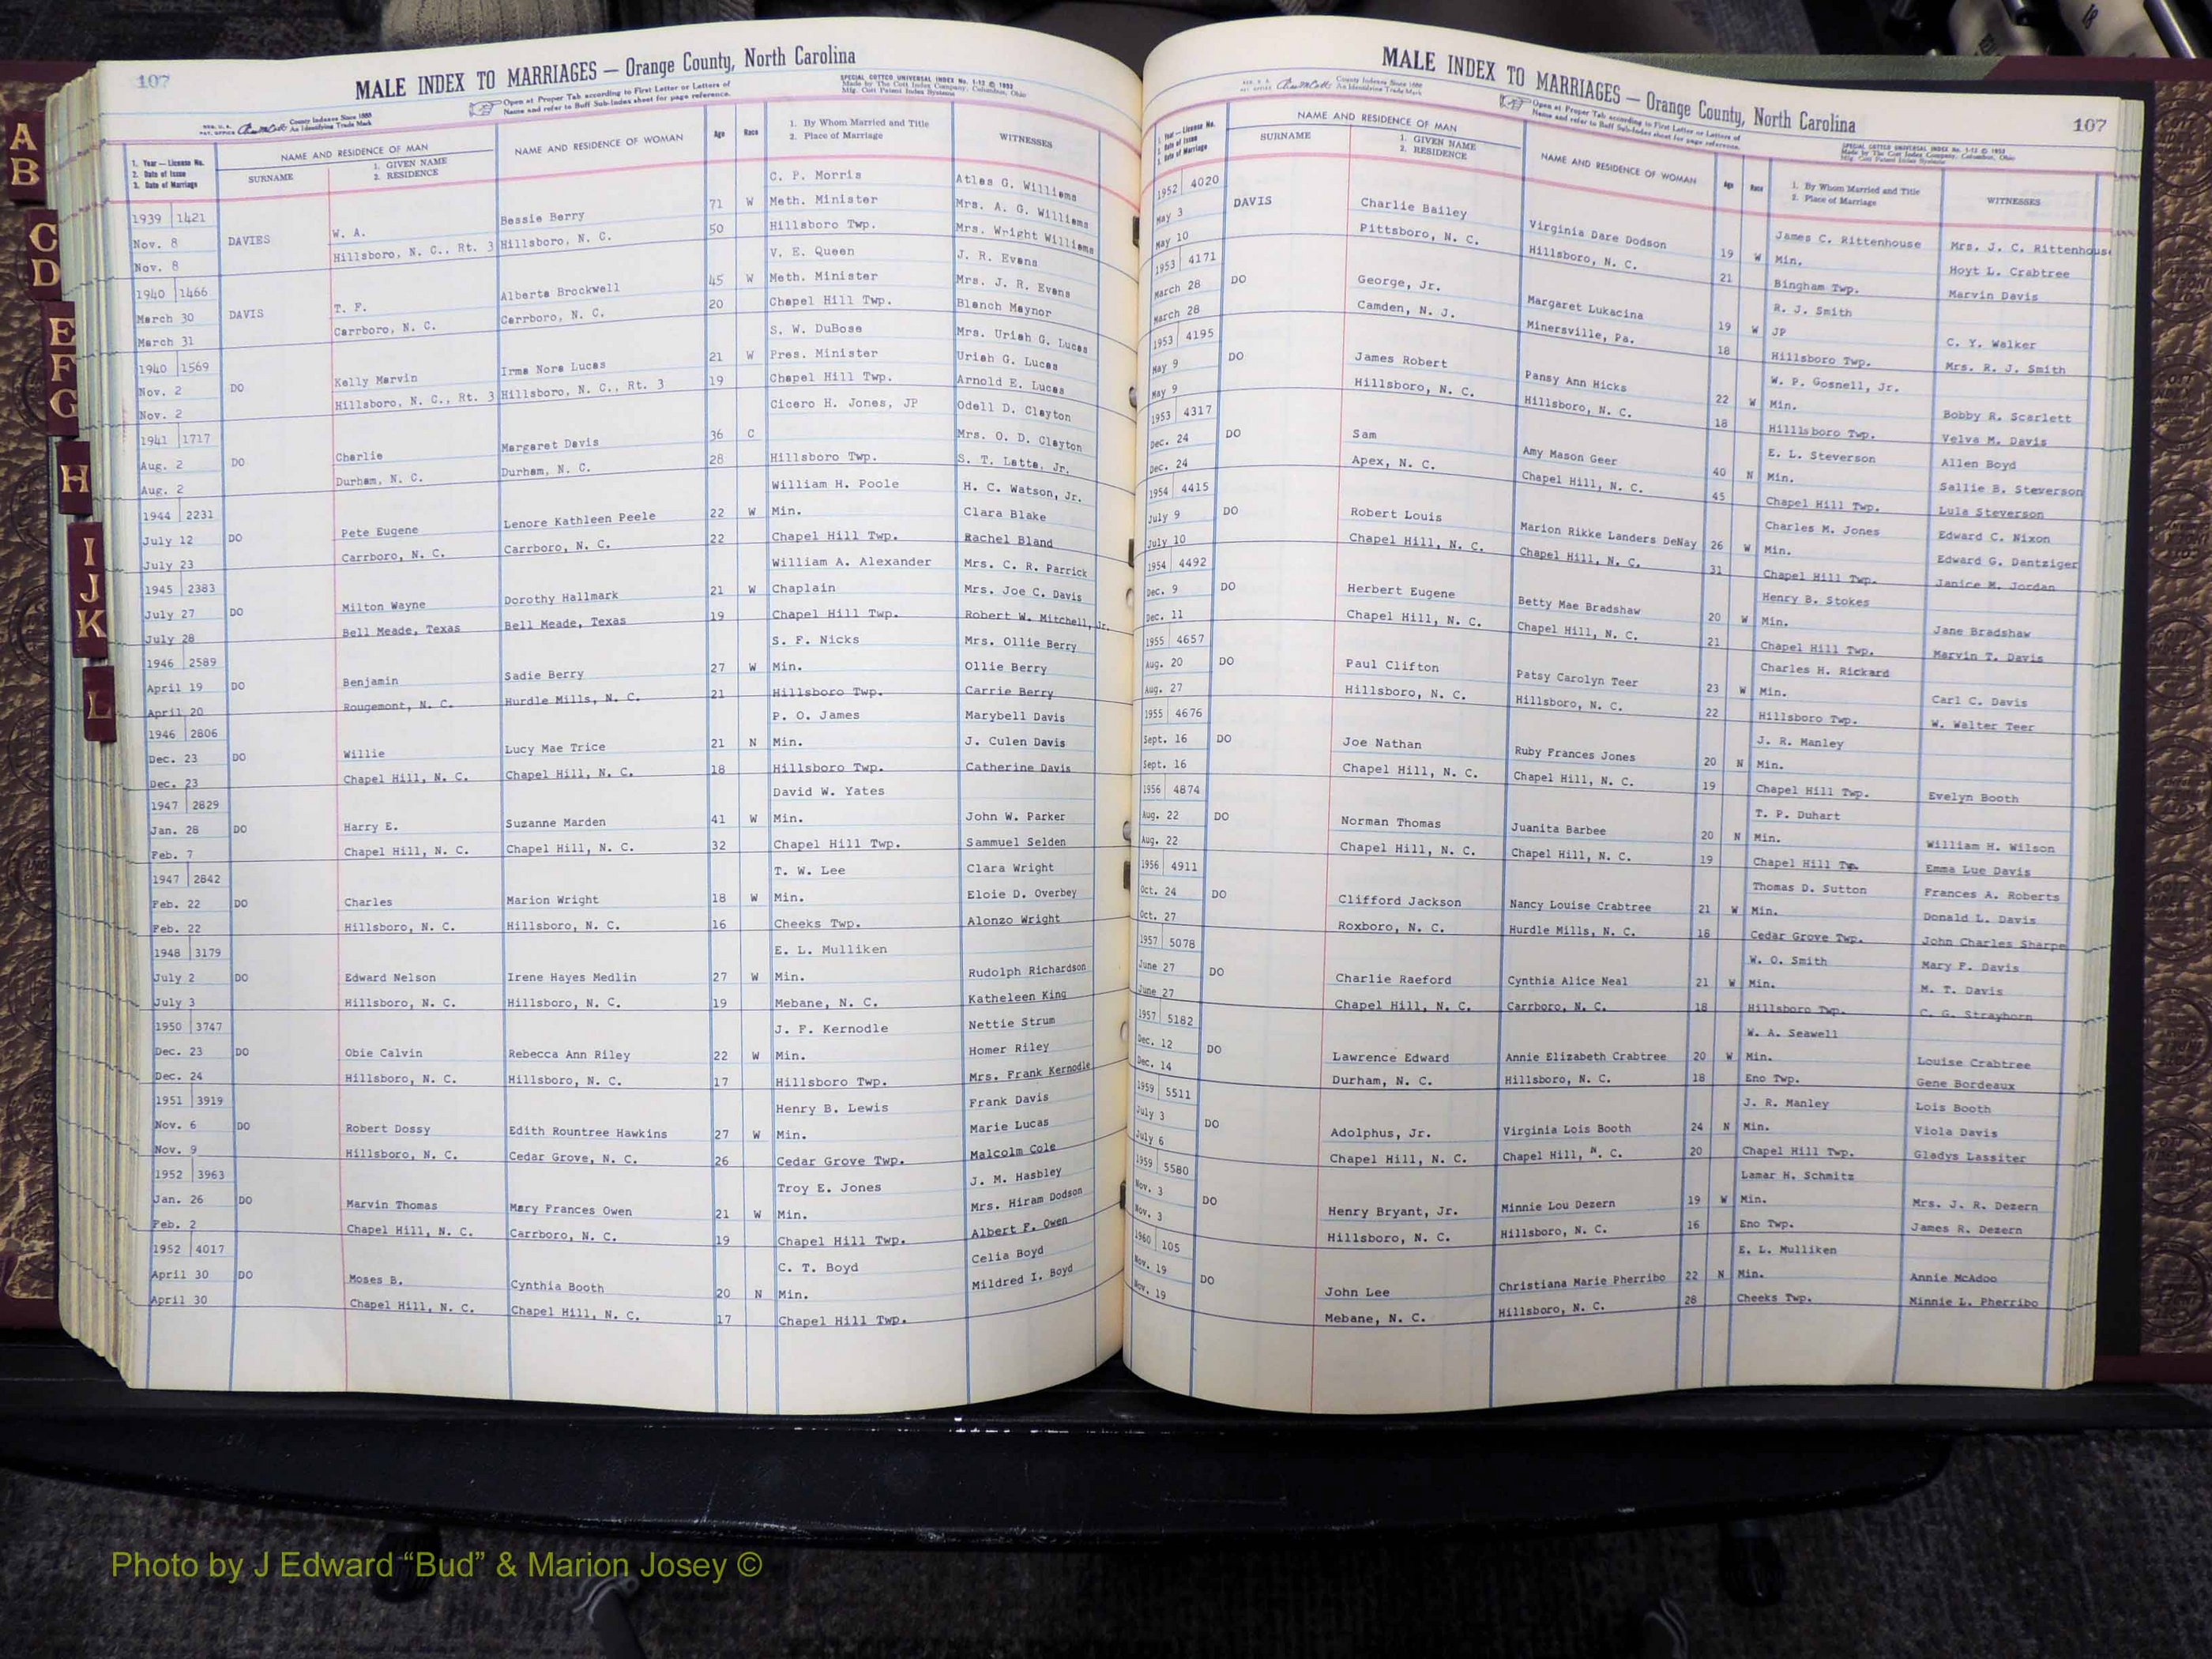 A
B
C
D
E
F
G
H
I
J
K
L
107
MALE INDEX TO MARRIAGES — Orange County, North Carolina
Open at Proper Tab according to First Letter or Letters of
Name and refer to Buff Sub-Index sheet for page reference.
SPECIAL COTTCO UNIVERSAL INDEX No. 1-12 © 1952
Made by The Cott Index Company, Columbus, Ohio
Mfg. Cott Patent Index Systems
County Indexes Since 1888
An Identifying Trade Mark
1. Year — License No.
2. Date of Issue
3. Date of Marriage
NAME AND RESIDENCE OF MAN
SURNAME
1. GIVEN NAME
2. RESIDENCE
NAME AND RESIDENCE OF WOMAN
Age
Race
1. By Whom Married and Title
2. Place of Marriage
WITNESSES
C. P. Morris Atlas G. Williams
1939 1421 Bessie Berry 71 W Meth. Minister Mrs. A. G. Williams
Nov. 8 DAVIES W. A. Hillsboro, N. C. 50 Hillsboro Twp. Mrs. Wright Williams
Nov. 8 Hillsboro, N. C., Rt. 3
V. E. Queen J. R. Evans
1940 1466 Alberta Brockwell 45 W Meth. Minister Mrs. J. R. Evans
March 30 DAVIS T. F. Carrboro, N. C. 20 Chapel Hill Twp. Blanch Maynor
March 31 Carrboro, N. C.
S. W. DuBose Mrs. Uriah G. Lucas
1940 1569 Irma Nora Lucas 21 W Pres. Minister Uriah G. Lucas
Nov. 2 DO Kelly Marvin Hillsboro, N. C., Rt. 3 19 Chapel Hill Twp. Arnold E. Lucas
Nov. 2 Hillsboro, N. C., Rt. 3
Cicero H. Jones, JP Odell D. Clayton
1941 1717 Margaret Davis 36 C Mrs. O. D. Clayton
Aug. 2 DO Charlie Durham, N. C. 28 Hillsboro Twp. S. T. Latta, Jr.
Aug. 2 Durham, N. C.
William H. Poole H. C. Watson, Jr.
1944 2231 Lenore Kathleen Peele 22 W Min. Clara Blake
July 12 DO Pete Eugene Carrboro, N. C. 22 Chapel Hill Twp. Rachel Bland
July 23 Carrboro, N. C.
William A. Alexander Mrs. C. R. Parrick
1945 2383 Dorothy Hallmark 21 W Chaplain Mrs. Joe C. Davis
July 27 DO Milton Wayne Bell Meade, Texas 19 Chapel Hill Twp. Robert W. Mitchell, Jr.
July 28 Bell Meade, Texas
S. F. Nicks Mrs. Ollie Berry
1946 2589 Sadie Berry 27 W Min. Ollie Berry
April 19 DO Benjamin Hurdle Mills, N. C. 21 Hillsboro Twp. Carrie Berry
April 20 Rougemont, N. C.
P. O. James Marybell Davis
1946 2806 Lucy Mae Trice 21 N Min. J. Culen Davis
Dec. 23 DO Willie Chapel Hill, N. C. 18 Hillsboro Twp. Catherine Davis
Dec. 23 Chapel Hill, N. C.
David W. Yates
1947 2829 Suzanne Marden 41 W Min. John W. Parker
Jan. 28 DO Harry E. Chapel Hill, N. C. 32 Chapel Hill Twp. Sammuel Selden
Feb. 7 Chapel Hill, N. C.
T. W. Lee Clara Wright
1947 2842 Marion Wright 18 W Min. Eloie D. Overbey
Feb. 22 DO Charles Hillsboro, N. C. 16 Cheeks Twp. Alonzo Wright
Feb. 22 Hillsboro, N. C.
E. L. Mulliken
1948 3179 Irene Hayes Medlin 27 W Min. Rudolph Richardson
July 2 DO Edward Nelson Hillsboro, N. C. 19 Mebane, N. C. Katheleen King
July 3 Hillsboro, N. C.
J. F. Kernodle Nettie Strum
1950 3747 Rebecca Ann Riley 22 W Min. Homer Riley
Dec. 23 DO Obie Calvin Hillsboro, N. C. 17 Hillsboro Twp. Mrs. Frank Kernodle
Dec. 24 Hillsboro, N. C.
Henry B. Lewis Frank Davis
1951 3919 Edith Rountree Hawkins 27 W Min. Marie Lucas
Nov. 6 DO Robert Dossy Cedar Grove, N. C. 26 Cedar Grove Twp. Malcolm Cole
Nov. 9 Hillsboro, N. C.
Troy E. Jones J. M. Hasbley
1952 3963 Mary Frances Owen 21 W Min. Mrs. Hiram Dodson
Jan. 26 DO Marvin Thomas Carrboro, N. C. 19 Chapel Hill Twp. Albert F. Owen
Feb. 2 Chapel Hill, N. C.
C. T. Boyd Celia Boyd
1952 4017 Cynthia Booth 20 N Min. Mildred I. Boyd
April 30 DO Moses B. Chapel Hill, N. C. 17 Chapel Hill Twp.
April 30 Chapel Hill, N. C.
MALE INDEX TO MARRIAGES — Orange County, North Carolina
107
County Indexes Since 1888
An Identifying Trade Mark
Open at Proper Tab according to First Letter or Letters of
Name and refer to Buff Sub-Index sheet for page reference.
SPECIAL COTTCO UNIVERSAL INDEX No. 1-12 © 1952
Made by The Cott Index Company, Columbus, Ohio
Mfg. Cott Patent Index Systems
1. Year — License No.
2. Date of Issue
3. Date of Marriage
NAME AND RESIDENCE OF MAN
SURNAME
1. GIVEN NAME
2. RESIDENCE
NAME AND RESIDENCE OF WOMAN
Age
Race
1. By Whom Married and Title
2. Place of Marriage
WITNESSES
1952 4020 James C. Rittenhouse Mrs. J. C. Rittenhouse
May 3 DAVIS Charlie Bailey Virginia Dare Dodson 19 W Min. Hoyt L. Crabtree
May 10 Pittsboro, N. C. Hillsboro, N. C. 21 Bingham Twp. Marvin Davis
1953 4171 R. J. Smith
March 28 DO George, Jr. Margaret Lukacina 19 W JP C. Y. Walker
March 28 Camden, N. J. Minersville, Pa. 18 Hillsboro Twp. Mrs. R. J. Smith
1953 4195 W. P. Gosnell, Jr.
May 9 DO James Robert Pansy Ann Hicks 22 W Min. Bobby R. Scarlett
May 9 Hillsboro, N. C. Hillsboro, N. C. 18 Hilllsboro Twp. Velva M. Davis
1953 4317 E. L. Steverson Allen Boyd
Dec. 24 DO Sam Amy Mason Geer 40 N Min. Sallie B. Steverson
Dec. 24 Apex, N. C. Chapel Hill, N. C. 45 Chapel Hill Twp. Lula Steverson
1954 4415 Charles M. Jones Edward C. Nixon
July 9 DO Robert Louis Marion Rikke Landers DeNay 26 W Min. Edward G. Dantziger
July 10 Chapel Hill, N. C. Chapel Hill, N. C. 31 Chapel Hill Twp. Janice M. Jordan
1954 4492 Henry B. Stokes
Dec. 9 DO Herbert Eugene Betty Mae Bradshaw 20 W Min. Jane Bradshaw
Dec. 11 Chapel Hill, N. C. Chapel Hill, N. C. 21 Chapel Hill Twp. Marvin T. Davis
1955 4657 Charles H. Rickard
Aug. 20 DO Paul Clifton Patsy Carolyn Teer 23 W Min. Carl C. Davis
Aug. 27 Hillsboro, N. C. Hillsboro, N. C. 22 Hillsboro Twp. W. Walter Teer
1955 4676 J. R. Manley
Sept. 16 DO Joe Nathan Ruby Frances Jones 20 N Min.
Sept. 16 Chapel Hill, N. C. Chapel Hill, N. C. 19 Chapel Hill Twp. Evelyn Booth
1956 4874 T. P. Duhart
Aug. 22 DO Norman Thomas Juanita Barbee 20 N Min. William H. Wilson
Aug. 22 Chapel Hill, N. C. Chapel Hill, N. C. 19 Chapel Hill Emma Lue Davis
1956 4911 Thomas D. Sutton Frances A. Roberts
Oct. 24 DO Clifford Jackson Nancy Louise Crabtree 21 W Min. Donald L. Davis
Oct. 27 Roxboro, N. C. Hurdle Mills, N. C. 18 Cedar Grove Twp. John Charles Sharpe
1957 5078 W. O. Smith Mary F. Davis
June 27 DO Charlie Raeford Cynthia Alice Neal 21 W Min. M. T. Davis
June 27 Chapel Hill, N. C. Carrboro, N. C. 18 Hillsboro Twp. C. G. Strayhorn
1957 5182 W. A. Seawell
Dec. 12 DO Lawrence Edward Annie Elizabeth Crabtree 20 W Min. Louise Crabtree
Dec. 14 Durham, N. C. Hillsboro, N. C. 18 Eno Twp. Gene Bordeaux
1959 5511 J. R. Manley Lois Booth
July 3 DO Adolphus, Jr. Virginia Lois Booth 24 N Min. Viola Davis
July 6 Chapel Hill, N. C. Chapel Hill, N. C. 20 Chapel Hill Twp. Gladys Lassiter
1959 5580 Lamar H. Schmitz
Nov. 3 DO Henry Bryant, Jr. Minnie Lou Dezern 19 W Min. Mrs. J. R. Dezern
Nov. 3 Hillsboro, N. C. Hillsboro, N. C. 16 Eno Twp. James R. Dezern
1960 105 E. L. Mulliken
Nov. 19 DO John Lee Christiana Marie Pherribo 22 N Min. Annie McAdoo
Nov. 19 Mebane, N. C. Hillsboro, N. C. 28 Cheeks Twp. Minnie L. Pherribo
Photo by J Edward “Bud” & Marion Josey ©